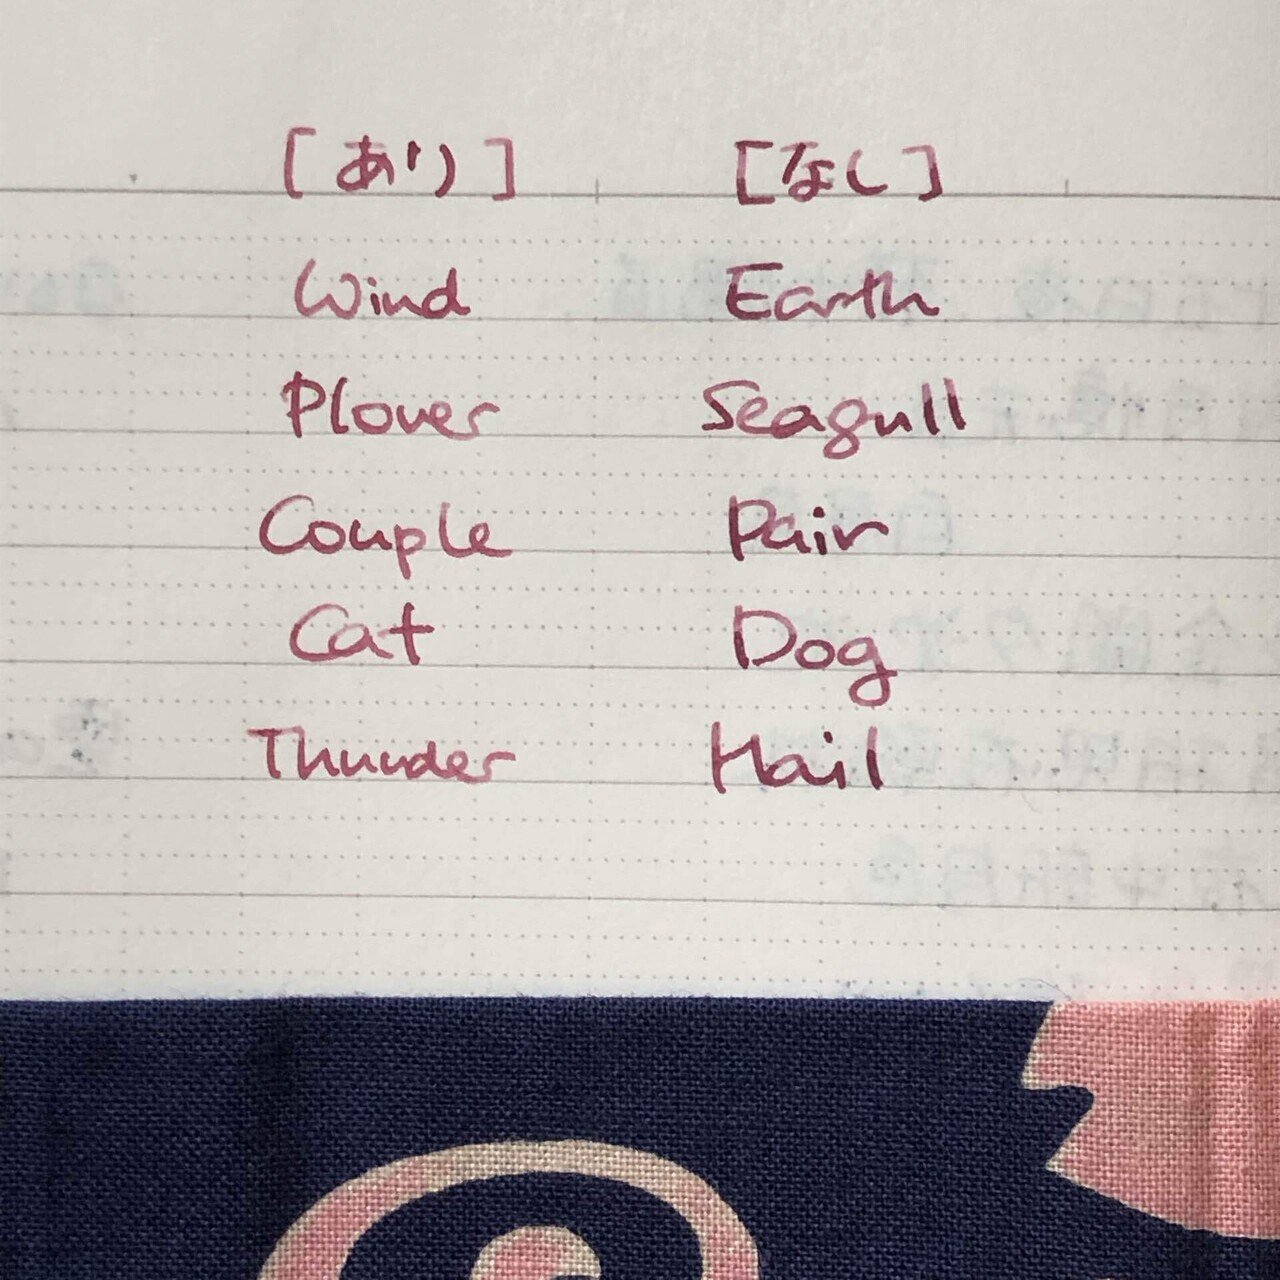 [あり] [なし]
Wind Earth
Plover Seagull
Couple Pair
Cat Dog
Thunder Hail